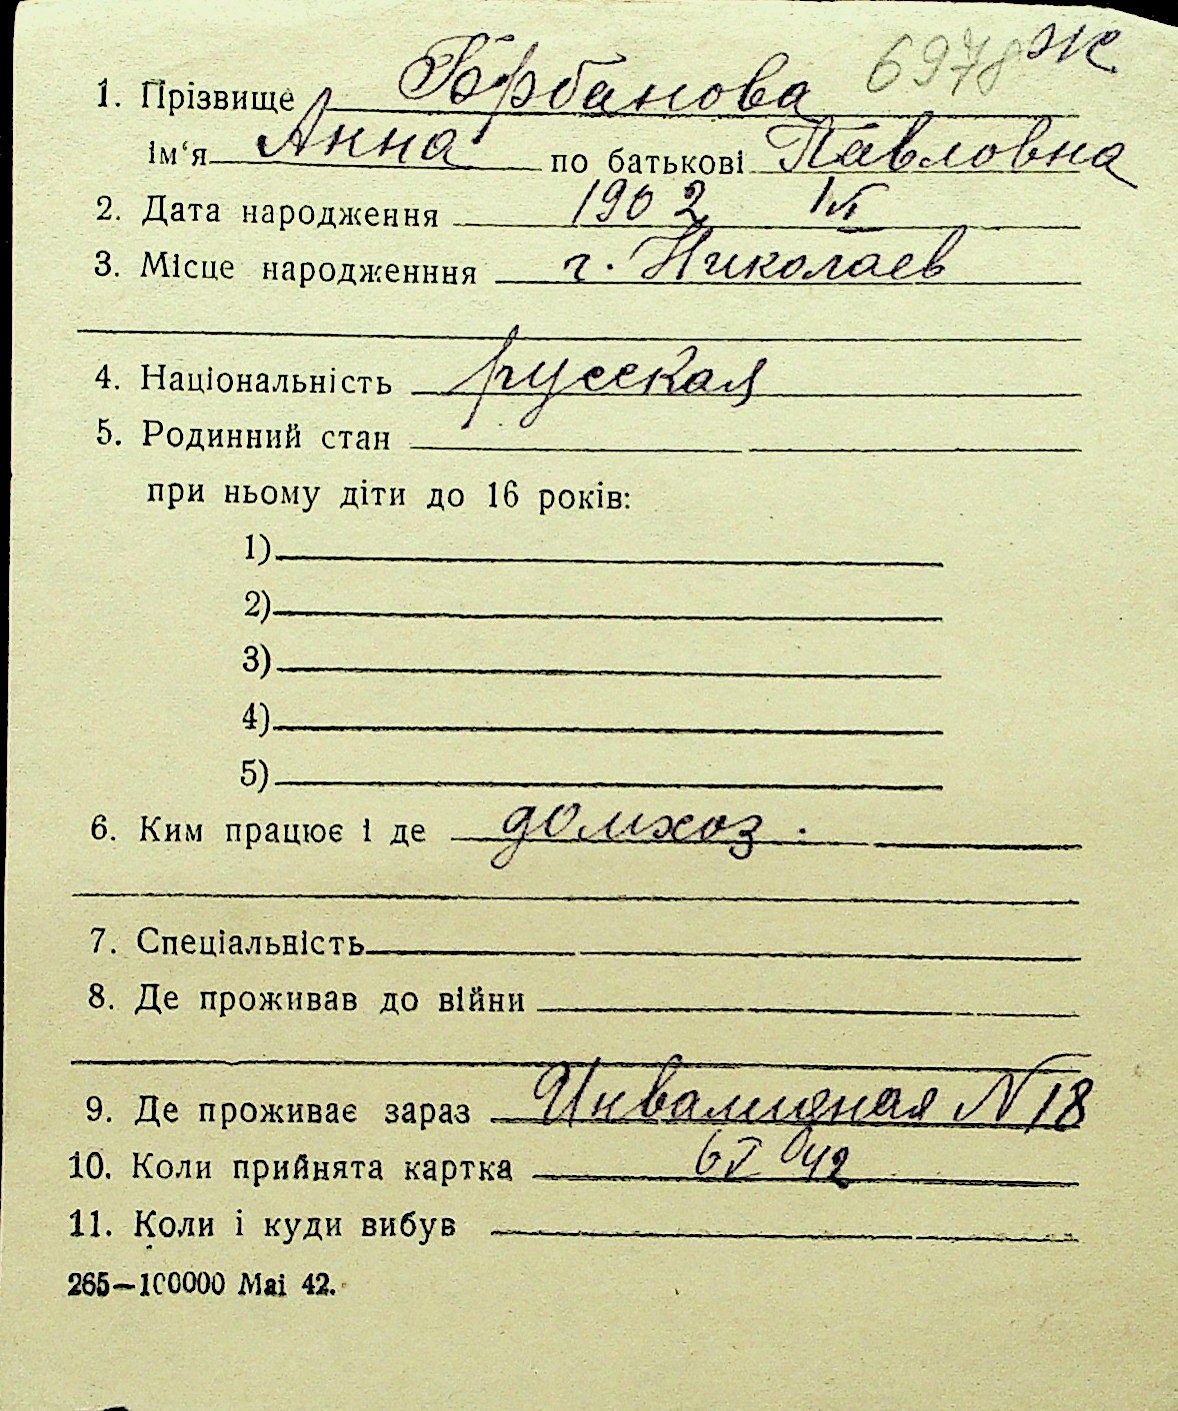 6978 Ж
1. Прізвище Борбанова
ім‘я Анна по батькові Павловна
2. Дата народження 1902 1 II
3. Місце народженння г. Николаев
4. Національність русская
5. Родинний стан
при ньому діти до 16 років:
1)
2)
3)
4)
5)
6. Ким працює і де домхоз.
7. Спеціальність
8. Де проживав до війни
9. Де проживає зараз Инвалидная N 18
10. Коли прийнята картка 42
11. Коли і куди вибув
265—100000 Mai 42.